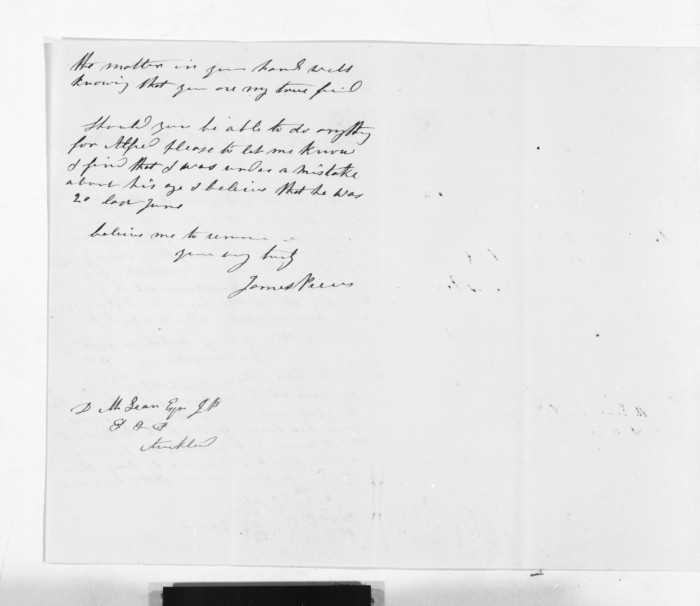 the matter in your hands well
knowing that you are my true frind
Should you be able to do anything
for Alfred please to let me know
I find that I was under a mistake
about his age I believe that he was
20 last June
believe me to remain
your very truly
James
D McLean Esqr J P
Auckland